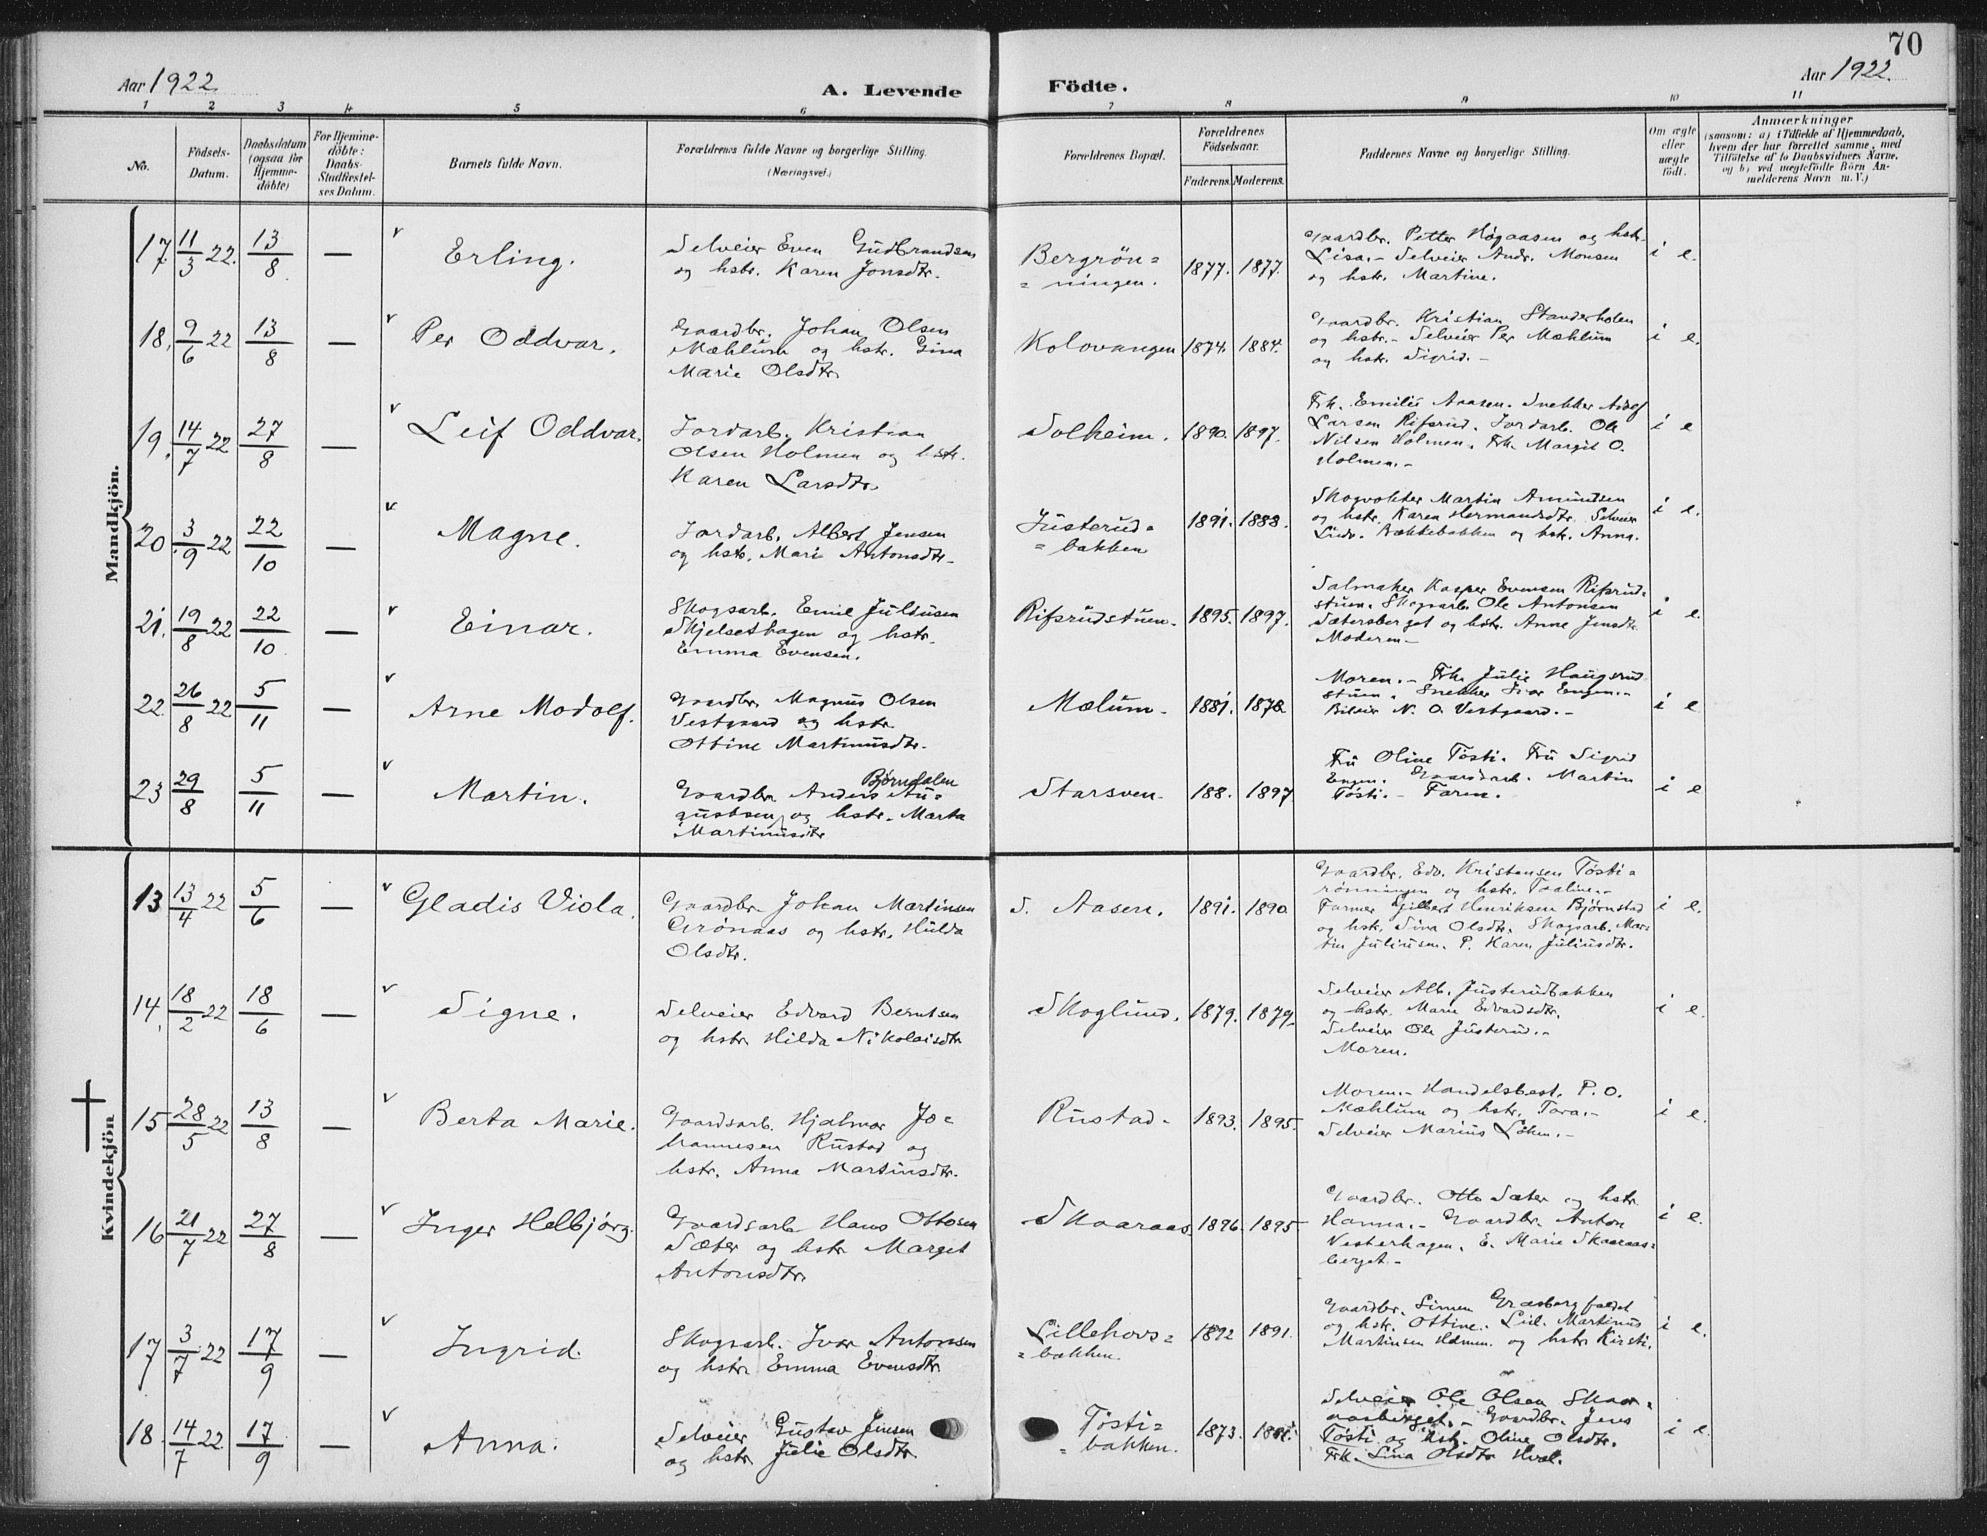 70
Aar 1922
A. Levende
Födte.
Aar 1922.
1 2 3 4 5 6 7 8 9 10 11
No.
Födsels-
Datum.
Daabsdatum
(ogsaa for
Hjemme-
döbte)
For Hjemme-
döbte:
Daabs-
Stadfestel-
ses Datum.
Barnets fulde Navn.
Forældrenes fulde Navne og borgerlige Stilling.
(Næringsvei.)
Forældrenes Bopæl.
Forældrenes
Födselsaar.
Faderens. Moderens.
Faddernes Navne og borgerlige Stilling.
Om ægte
eller
uægte
födt.
Anmærkninger
(saasom: a) i Tilfælde af Hjemmedaab,
hvem der har forrettet samme, med
Tilföielse af to Daabsvidners Navne.
og b) ved uægtefödte Börn An-
melderens Navn m. V.)
Mandkjön.
17 11/3 22. 13/8 — v Erling.
Selveier Even Gudbrandsen
og hstr. Karen Jonsdtr.
Bergrön=
=ningen.
1877. 1877.
Gaardbr. Petter Høgaasen og hstr.
Lisa.- Selveier Andr. Monsen
og hstr. Martine.
i e.
18. 9/6 22 13/8 — v Per Oddvar.
Gaardbr. Johan Olsen
Mæhlum og hstr. Gina
Marie Olsdtr.
Kolovangen
1874. 1884.
Gaardbr. Kristian Standerholen
og hstr.- Selveier Per Mæhlum
og hstr. Sigrid.-
i e.
19. 14/7 22 27/8 — v Leif Oddvar.
Jordarb. Kristian
Olsen Holmen og hstr.
Karen Larsdtr.
Solheim.
1890. 1897.
Frk. Emilie Aaasen. Snekker Adolf
Larsen Rifsrud. Jordarb. Ole
Nilsen Holmen. Frk. Margit O.
Holmen.-
i e
20 3/9 22 22/10 — v Magne.
Jordarb. Albert Jensen
og hstr. Mari Antonsdtr-
Justerud=
=bakken
1891. 1888.
Skogvokter Martin Amundsen
og hstr. Karen Hermansdtr. Selveier
Ludv. Bækkebakken og hstr. Anna.
i e.
21. 19/8 22 22/10 — v Einar.
Skogsarb. Emil Juliusen
Skjelsethagen og hstr.
Emma Evensen.
Rifsrudstuen.
1895. 1897.
Salmaker Kasper Evensen Rifsrud=
stuen. Skogsarb. Ole Antonsen
Sætersberget og hstr. Anne Jensdtr.
Moderen-
i e.
22 26/8 22 5/11 — v Arne Modolf.
Gaardbr. Magnus Olsen
Vestgaard og hstr.
Ottine Martinusdtr.
Mælum-
1881. 1878
Moren.- Frk. Julie Haugsrud
stuen. Snekker Ivar Engen.-
Bileier N. O. Vestgaard.-
i e
23 29/8 5/11 — v Martin.
Bjørndalen
Gaardbr. Anders Au=
gustsen og hstr. Marta
Martinusdtr
Starsven-
188. 1897
Fru Oline Tösti. Fru Sigrid
Engen. Gaardarb. Martin
Tösti.- Faren.
i e
Kvindekjön
13 13/4 22 5/6 — v Gladis Viola.
Gaardbr. Johan Martinsen
Grönaas og hstr. Hulda
Olsdtr.
S. Aasen.
1891. 1890
Gaardbr. Edv. Kristansen Tösti=
rønningen og hstr. Taaline.-
Farmer Gilbert Henriksen Bjørnstad
og hstr. Sina Olsdtr. Skogsarb. Mar=
tin Juliusen. P. Karen Juliusdtr.
i e.
14. 18/2 22 18/6 — v Signe.
Selveier Edvard Berntsen
og hstr Hilda Nikolaisdtr
Skoglund.
1879. 1879.
Selveier Alb. Justerudbakken
og hstr. Marie Edvardsdtr.
Selveier Ole Justerud.-
Moren.
i e.
15 28/5 22 13/8 — v Berta Marie.
Gaardsarb. Hjalmar Jo=
hannesen Rustad og
hstr. Anna Martinsdtr.
Rustad-
1893. 1895.
Moren.- Handelsbest. P. O.
Mæhlum og hstr. Tora.-
Selveier Marius Löhn.-
i e.
16 21/7 22 27/8 — v Inger Helbjörg.
Gaardsarb. Hans Ottosen
Sæter og hstr Marget
Antonsdtr.
Skaaraas
1896. 1895
Gaardbr. Otto Sæter og hstr
Hanna.- Gaardbr. Anton
Vesterhagen. E. Marie Skaaraas=
berget-
i e.
17 3/7 22 17/9 — v Ingrid.
Skogsarb. Ivar Antonsen
og hstr Emma Evensdtr
Lillehovs=
=bakken.
1892 1891.
Gaardbr. Simen Græsbergfaldet
og hstr. Ottine. Martinus
Martinsen og hstr Kirsti.
i e.
18. 14/7 22. 17/9 — v Anna.
Selveier Gustav Jensen
og hstr Julie Olsdtr
Tösti=
=bakken.
1873.
Selveier Ole Olsen Skaar=
aasberget.- Gaardbr. Jens
Tösti og hstr. Oline Olsdtr.
Frk. Lina Olsdtr Hval.
i e.